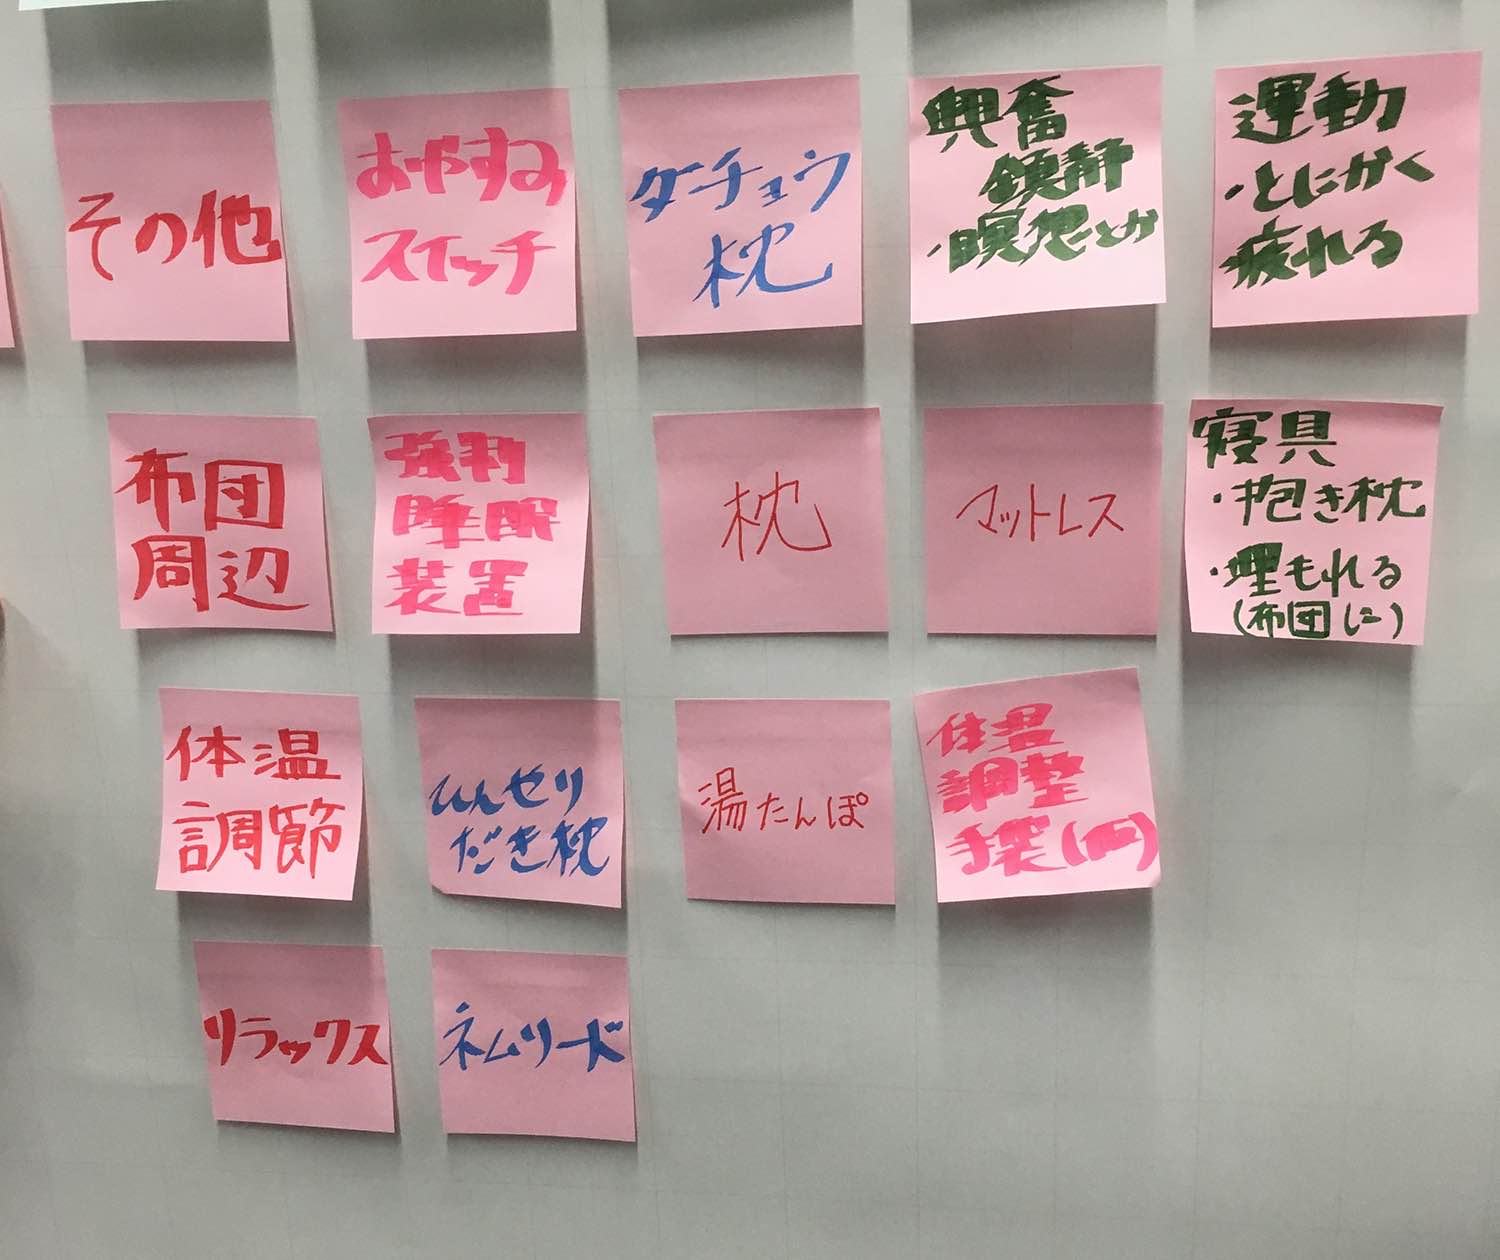 その他
おやすみ
スイッチ
ダチョウ
枕
興奮
鎮静
・瞑想とか
運動
・とにかく
疲れる
布団
周辺
強制
睡眠
装置
枕
マットレス
寝具
・抱き枕
・埋もれる
(布団に)
体温
調節
ひんやり
だき枕
湯たんぽ
体温
調整
手袋
リラックス
ネムリード